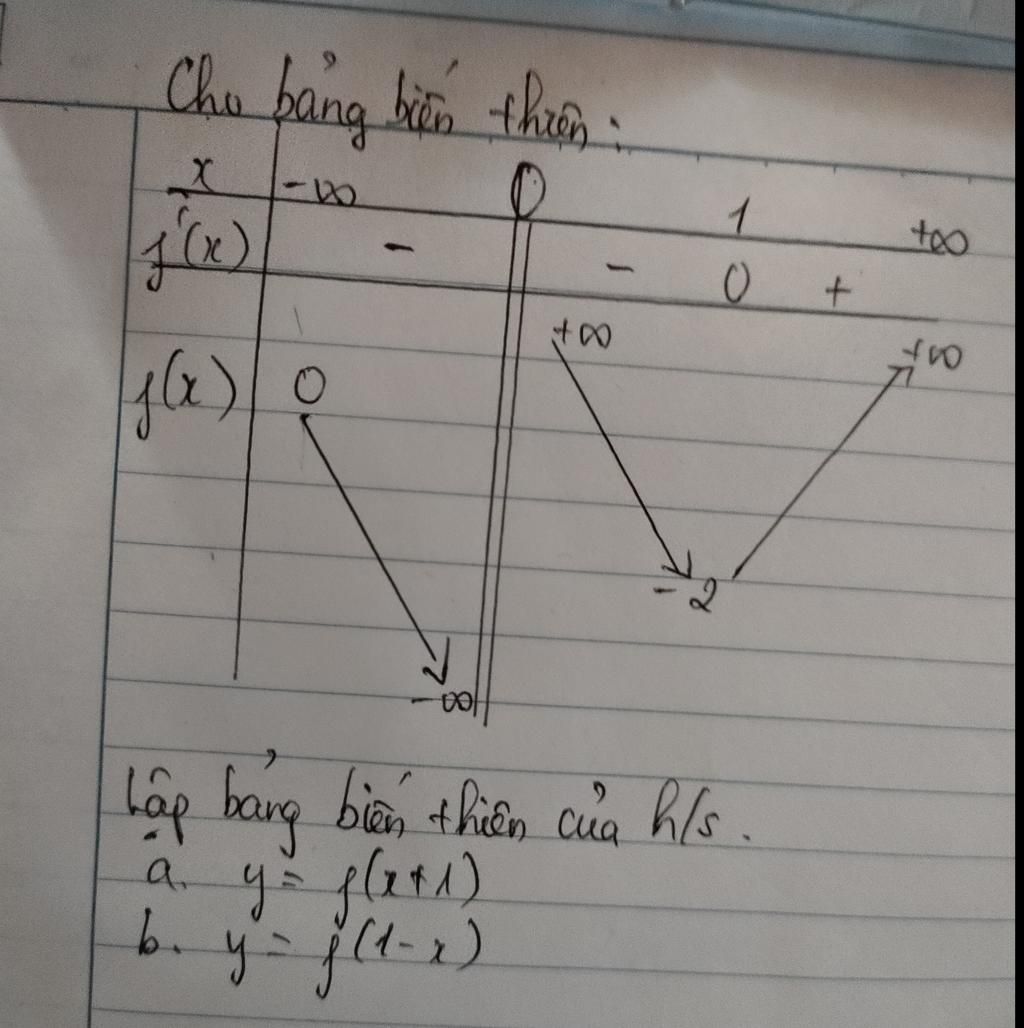 Cho bảng biến thiên :
x -∞ 0 1 +∞
f'(x) - - 0 +
f(x) 0 +∞ +∞
-2
-∞
Lập bảng biến thiên của h/s.
a. y = f(x+1)
b. y = f(1-x)